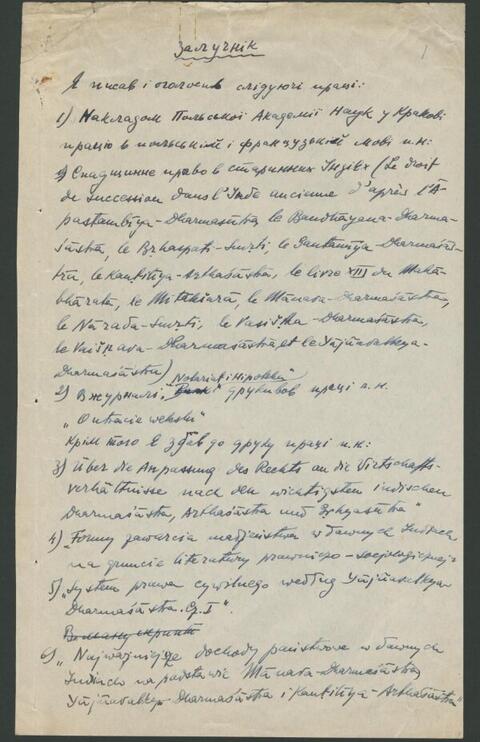 Залучнік
1
Я писав і оголосив слідуючі праці:
1) Накладом Польської Академії Наук у Кракові
працю в польській і французькій мові п.н.
Спадщинне право в старинних Індіях (Le droit
de succession dans l'Inde ancienne d'après l'Ā-
pastambīya-Dharmasūtra, le Baudhāyana-Dharma-
śāstra, le Bṛhaspati-Smṛti, le Gautamīya-Dharmaśās-
tra, le Kauṭilīya-Arthaśāstra, le livre XII du Mahā-
bhārata, le Mitākṣarā, le Mānava-Dharmaśāstra,
le Nārada-Smṛti, le Vasiṣṭha-Dharmaśāstra,
le Vaiṣṇava-Dharmaśāstra et le Yājñavalkya-
Dharmaśāstra)
2) В журналі "Notariat i Hipoteka" друкував працю п.н.
"O utracie weksli"
Крім того я здав до друку праці п.н:
3) "Über die Anpassung des Rechts an die Wirtschafts-
verhältnisse nach den wichtigsten indischen
Dharmaśāstra, Arthaśāstra und Gṛhyasūtra"
4) "Formy zawarcia małżeństwa w dawnych Indiach
na gruncie literatury prawniczo-socjologicznej"
5) "System prawa cywilnego według Yājñavalkya
Dharmaśāstra. Cz. I".
6) "Najważniejsze dochody państwowe w dawnych
Indiach na podstawie Mānava-Dharmaśāstra,
Yājñavalkya-Dharmaśāstra i Kauṭilīya-Arthaśāstra"